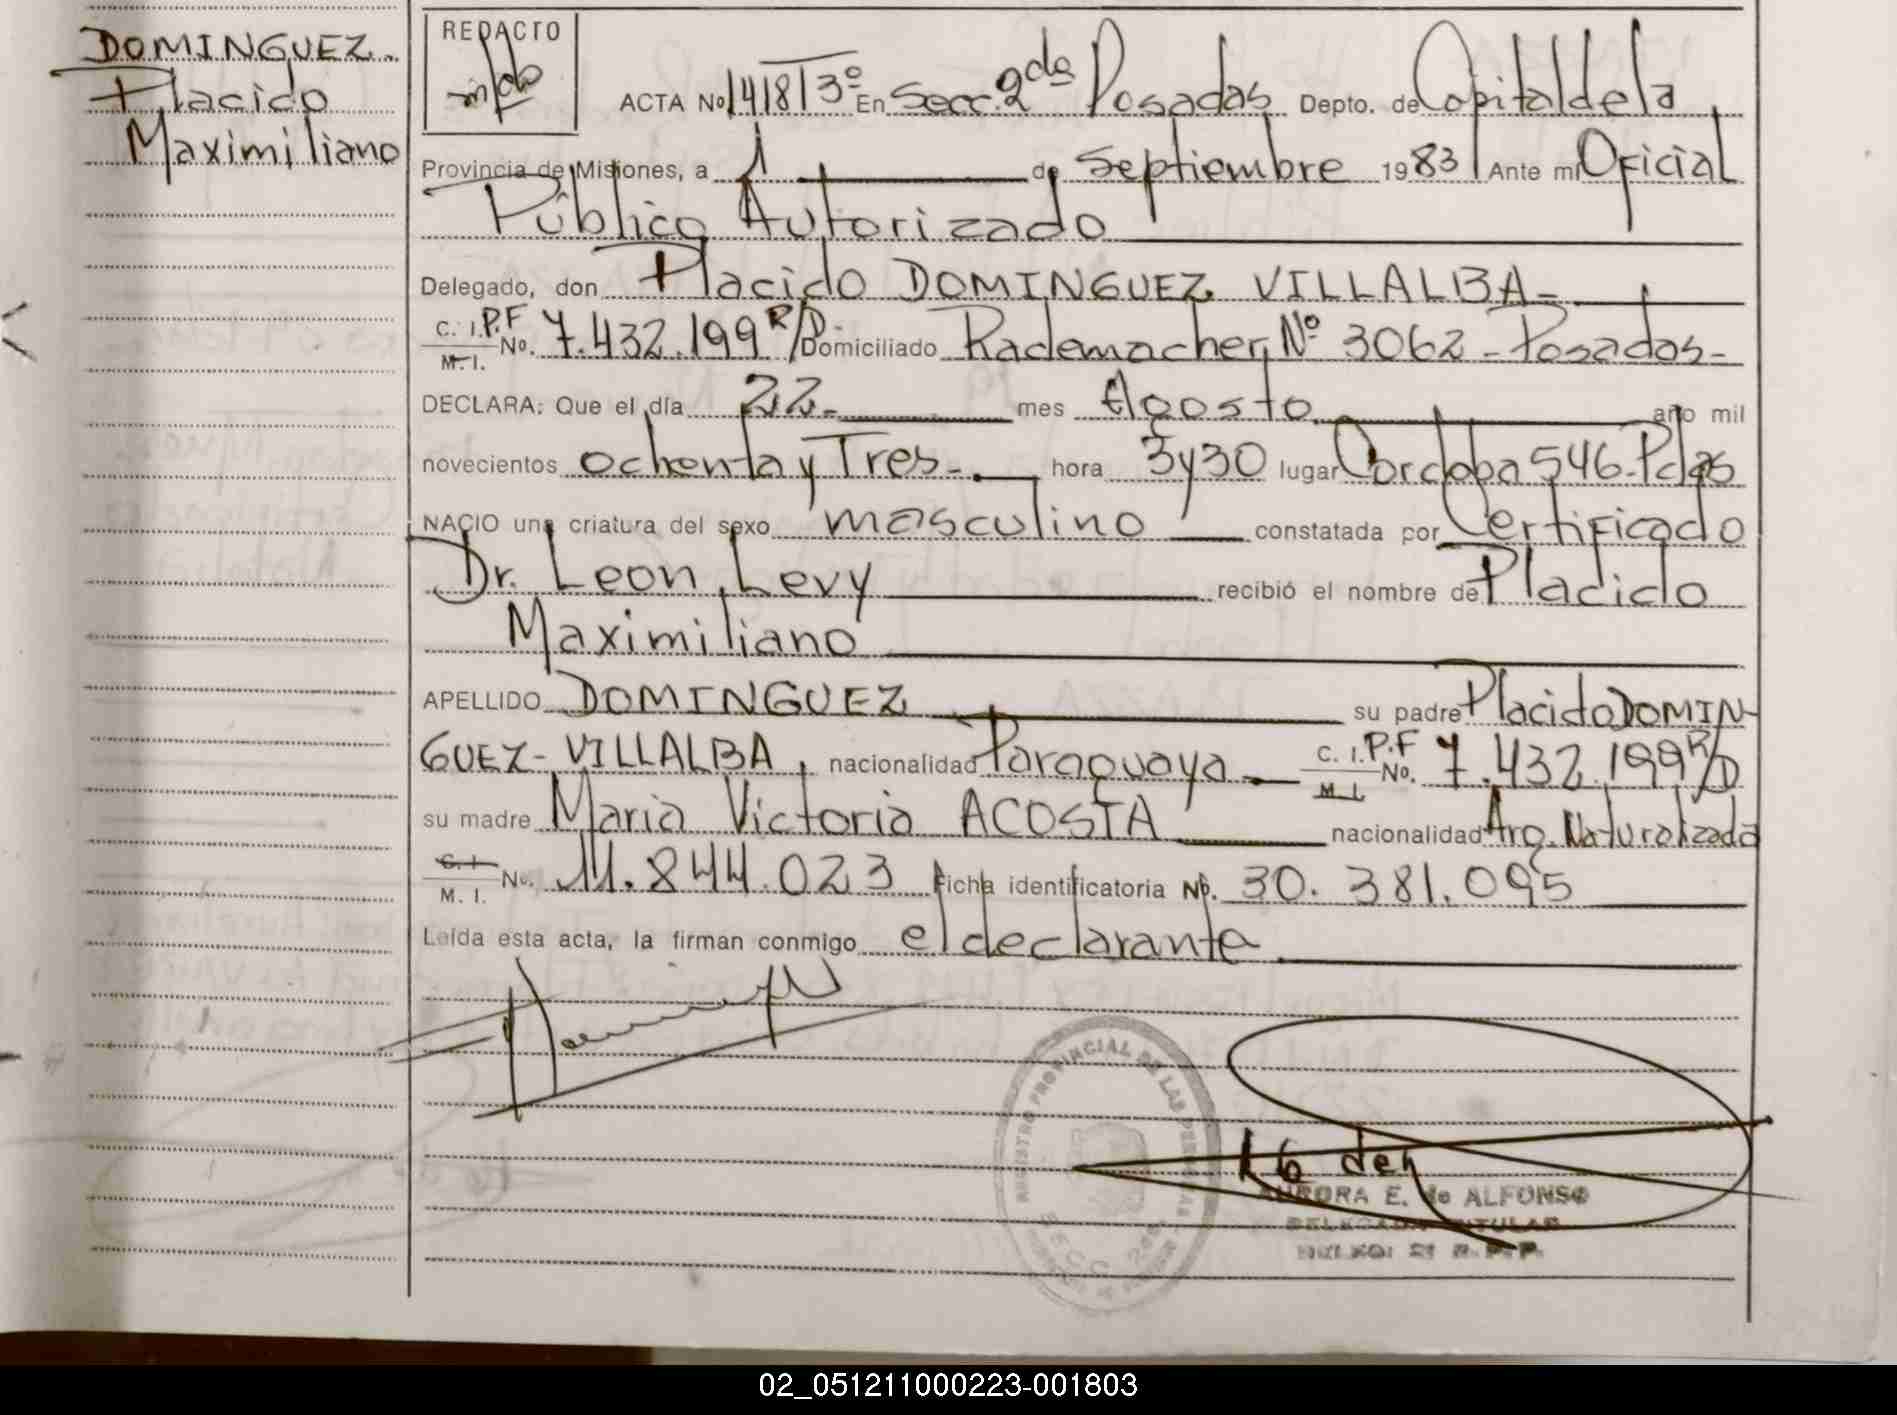 DOMINGUEZ
Placido
Maximiliano
REDACTO
ACTA No 1418 T3º En Secc. 2da Posadas Depto. de Capital de la
Provincia de Misiones, a 1 de Septiembre 1983 Ante mi Oficial
Público Autorizado
Delegado, don Placido DOMINGUEZ VILLALBA
C. I. P.F No. 7.432.199 R/D Domiciliado Rademacher Nº 3062 - Posadas-
M. I.
DECLARA: Que el día 22- mes Agosto año mil
novecientos ochenta y Tres- hora 3y30 lugar Cordoba 546-Pdas
NACIO una criatura del sexo masculino constatada por Certificado
Dr. Leon Levy recibió el nombre de Placido
Maximiliano
APELLIDO DOMINGUEZ su padre Placido DOMIN-
GUEZ-VILLALBA, nacionalidad Paraguaya C. I. P.F No. 7.432.199 R/D
M. I.
su madre Maria Victoria ACOSTA nacionalidad Arg. Naturalizada
C. I. No. 11.844.023 Ficha identificatoria No. 30.381.095
M. I.
Leída esta acta, la firman conmigo el declarante
REGISTRO PROVINCIAL DE LAS PERSONAS
SECC. 2da
AURORA E. de ALFONSO
DELEGADA TITULAR
02_051211000223-001803